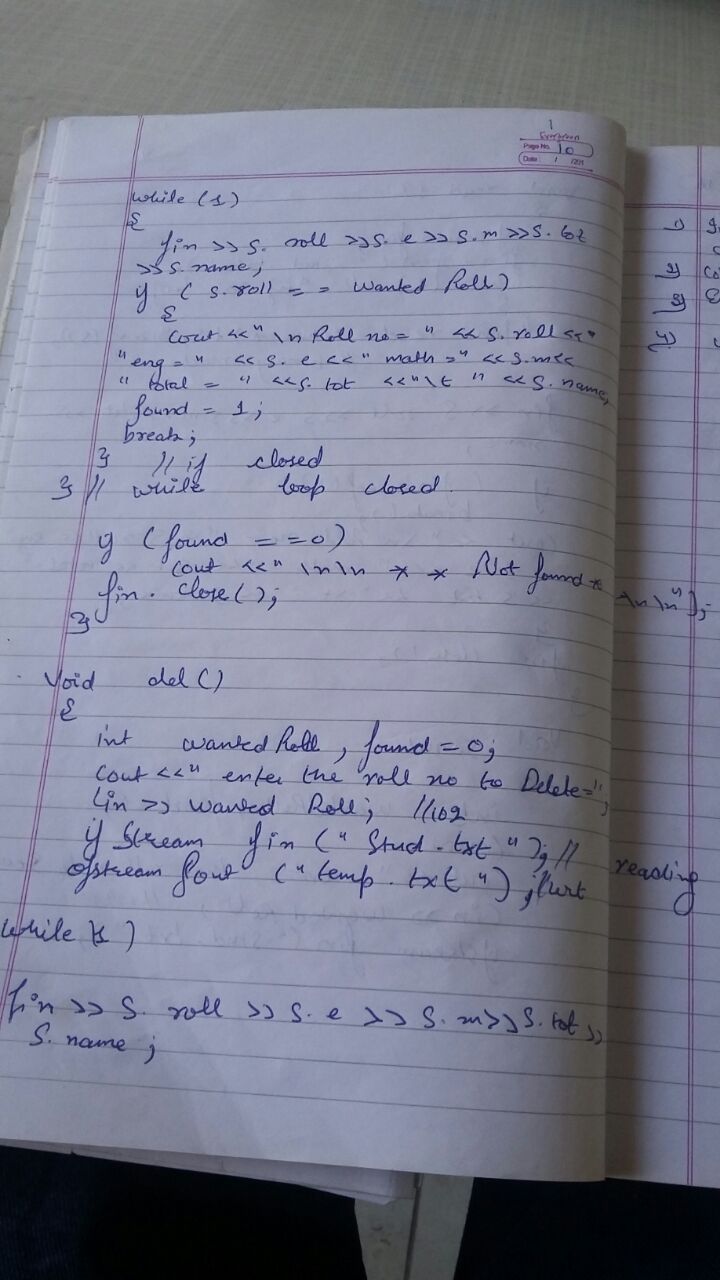 1
Evergreen
Page No. 10
Date / /201
while (1)
{
fin >> S. roll >>S. e >> S.m >>S. tot
>> S. name;
if ( S.roll = = Wanted Roll)
{
Cout <<" \n Roll no = " << S. roll <<"
"eng = " << S. e <<" math =" << S.m<<
" total = " <<S. tot <<"\t " << S. name;
found = 1;
break;
} // if closed
} // while loop closed.
if (found = = 0)
Cout <<" \n\n * * Not found * \n \n");
fin. Close();
}
Void del ()
{
int wanted Roll , found = 0;
Cout <<" enter the roll no to Delete=";
Cin >> Wanted Roll; //102
if Stream fin (" Stud . txt "); // reading
ofstream fout (" temp . txt "); //wrt
while (1)
fin >> S. roll >> S. e >> S. m>>S. tot >>
S. name ;
1)
2)
3)
4)